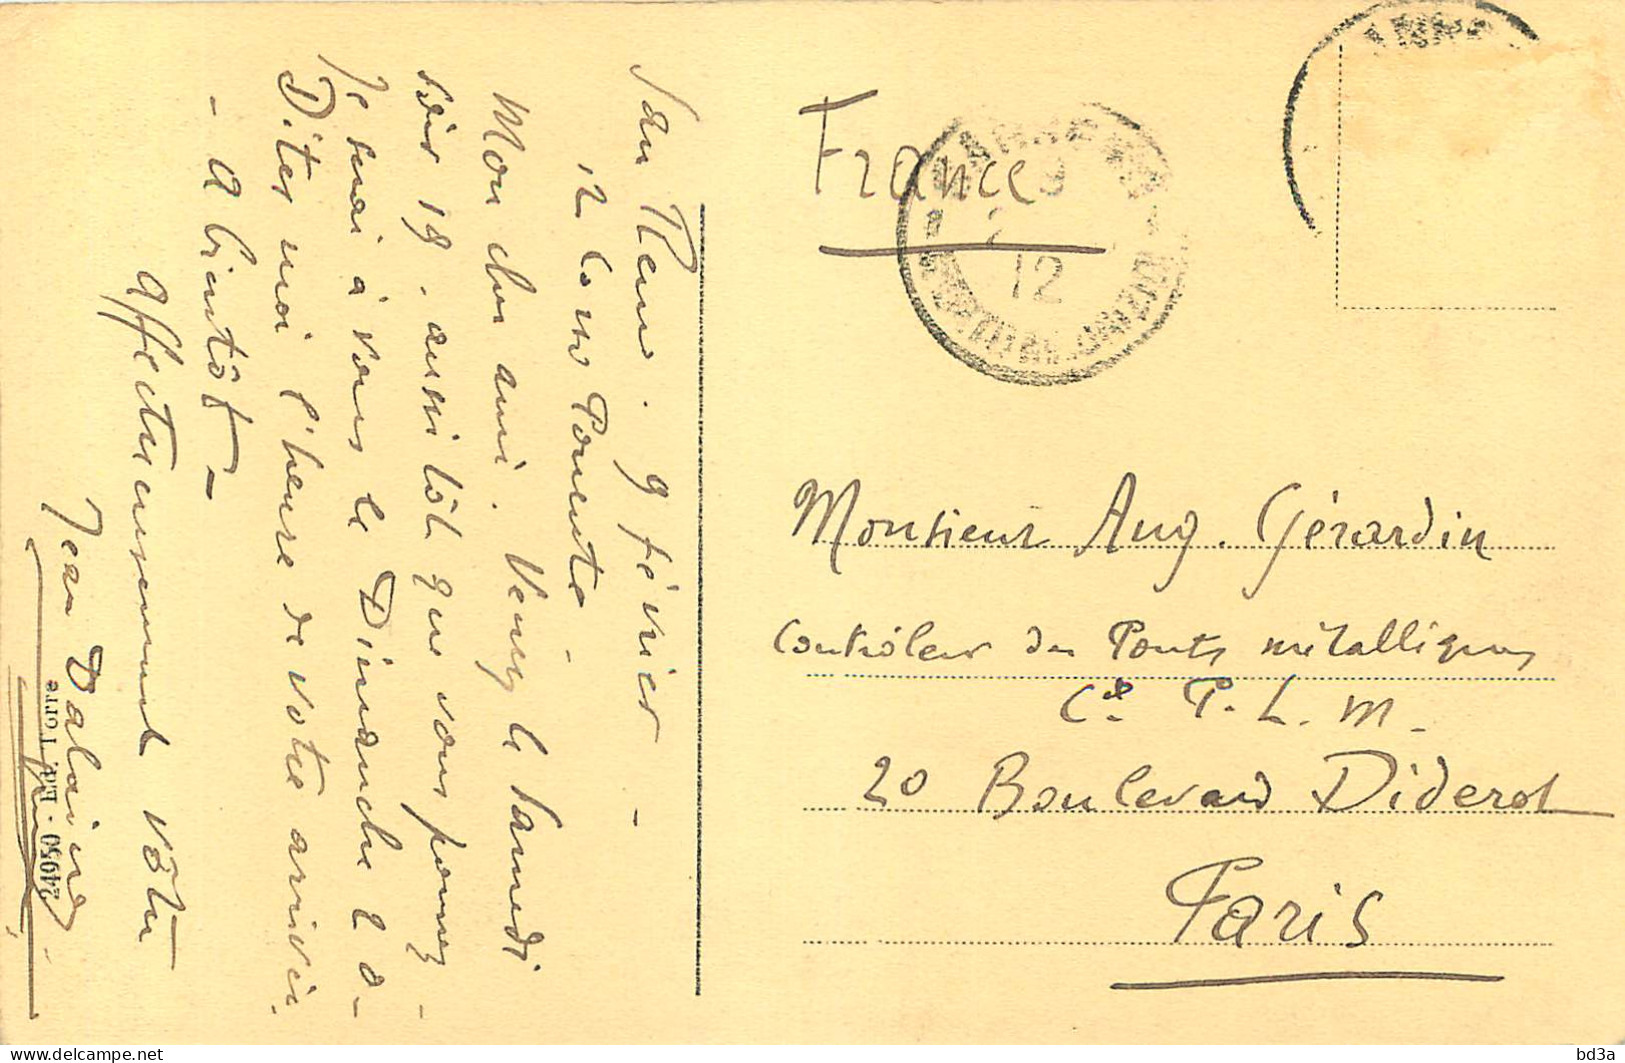 San Remo. 9 février -
12 Corso Ponente -
Mon cher ami. Venez le Samedi
soir 19. aussitôt que vous pouvez -
Je suis à vous le Dimanche 20 -
Dites moi l'heure de votre arrivée.
- A bientôt -
affectueusement vôtre
Jean
54050
France
9
12
Monsieur Aug. Gérardin
Contrôleur des Ponts métalliques
Cie P. L. M.
20 Boulevard Diderot
Paris
delcampe.net
bd3a